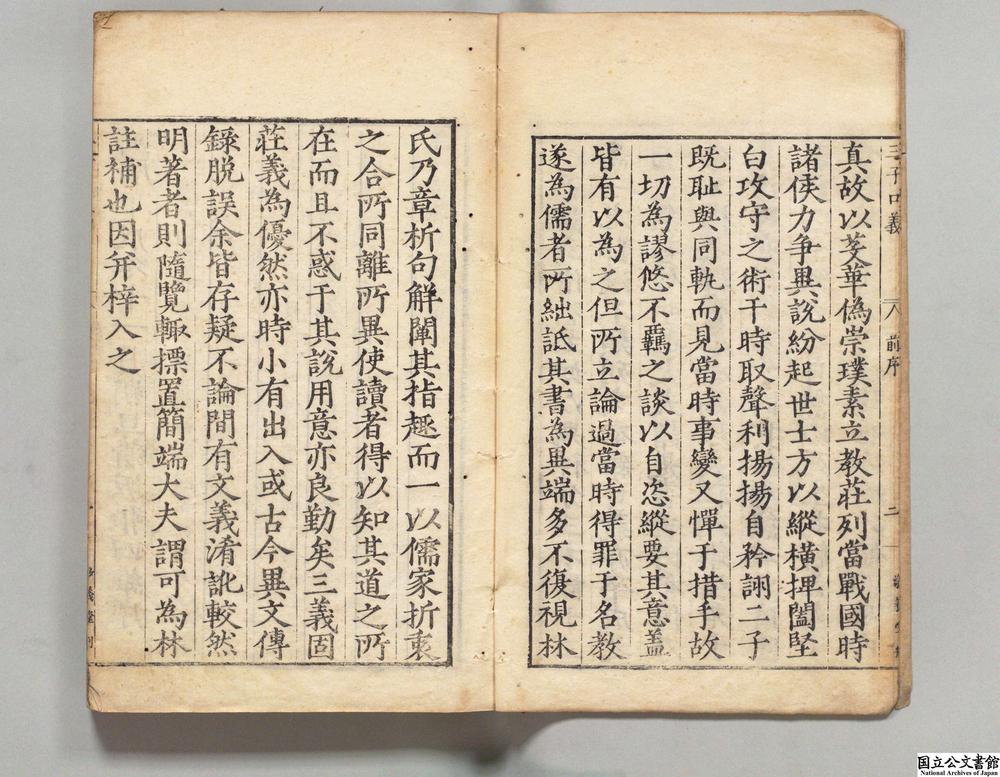 三子口義
前序
二
真故以芟華偽崇璞素立教莊列當戰國時
諸侯力爭異說紛起世士方以縱橫捭闔堅
白攻守之術干時取聲利揚揚自矜詡二子
既耻與同軌而見當時事變又憚于措手故
一切為謬悠不羈之談以自恣縱要其意盖
皆有以為之但所立論過當時得罪于名教
遂為儒者所絀詆其書為異端多不復視林
氏乃章析句解闡其指趣而一以儒家折衷
之合所同離所異使讀者得以知其道之所
在而且不惑于其說用意亦良勤矣三義固
莊義為優然亦時小有出入或古今異文傳
錄脫誤余皆存疑不論間有文義淆訛較然
明著者則隨覽輙摽置簡端大夫謂可為林
註補也因并梓入之
国立公文書館
National Archives of Japan